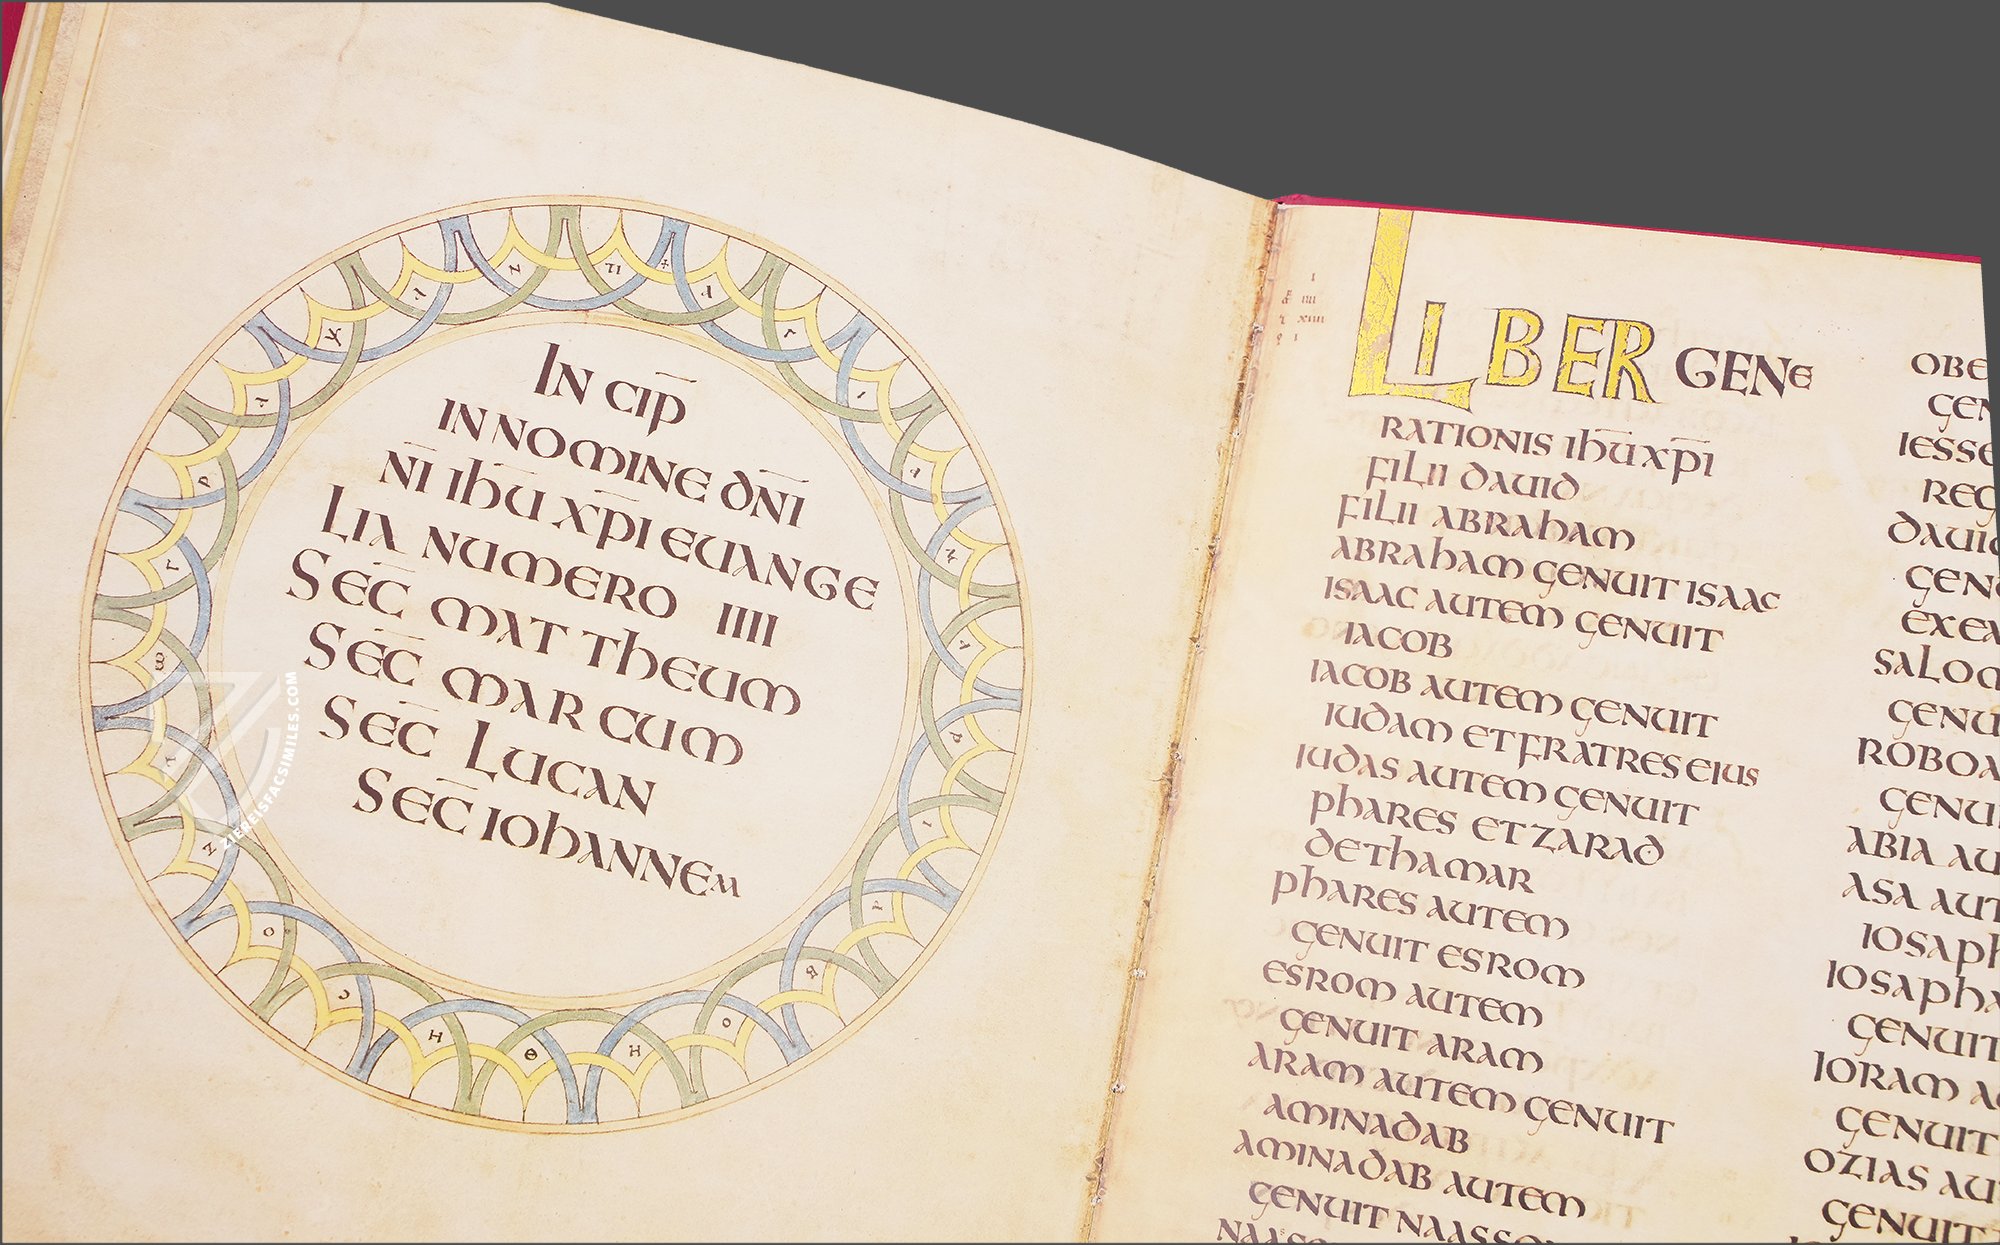 IN CIP̄
IN NOMINE DN̄I
N̄I IHŪ XP̄I EUANGE
LIA NUMERO IIII
SEC̄ MATTHEUM
SEC̄ MARCUM
SEC̄ LUCAN
SEC̄ IOHANNEM
ZIEREISFACSIMILES.COM
LIBER GENE
RATIONIS IHŪ XP̄I
FILII DAUID
FILII ABRAHAM
ABRAHAM GENUIT ISAAC
ISAAC AUTEM GENUIT
IACOB
IACOB AUTEM GENUIT
IUDAM ET FRATRES EIUS
IUDAS AUTEM GENUIT
PHARES ET ZARAD
DE THAMAR
PHARES AUTEM
GENUIT ESROM
ESROM AUTEM
GENUIT ARAM
ARAM AUTEM GENUIT
AMINADAB
AMINADAB AUTEM
GENUIT NAASSON
OBE
GEN
IESSE
REG
DAUID
GENU
EXEA
SALOM
GENU
ROBOA
GENUI
ABIA AU
ASA AUT
IOSAPH
IOSAPHA
GENUIT
IORAM A
GENUIT
OZIAS AU
GENUIT